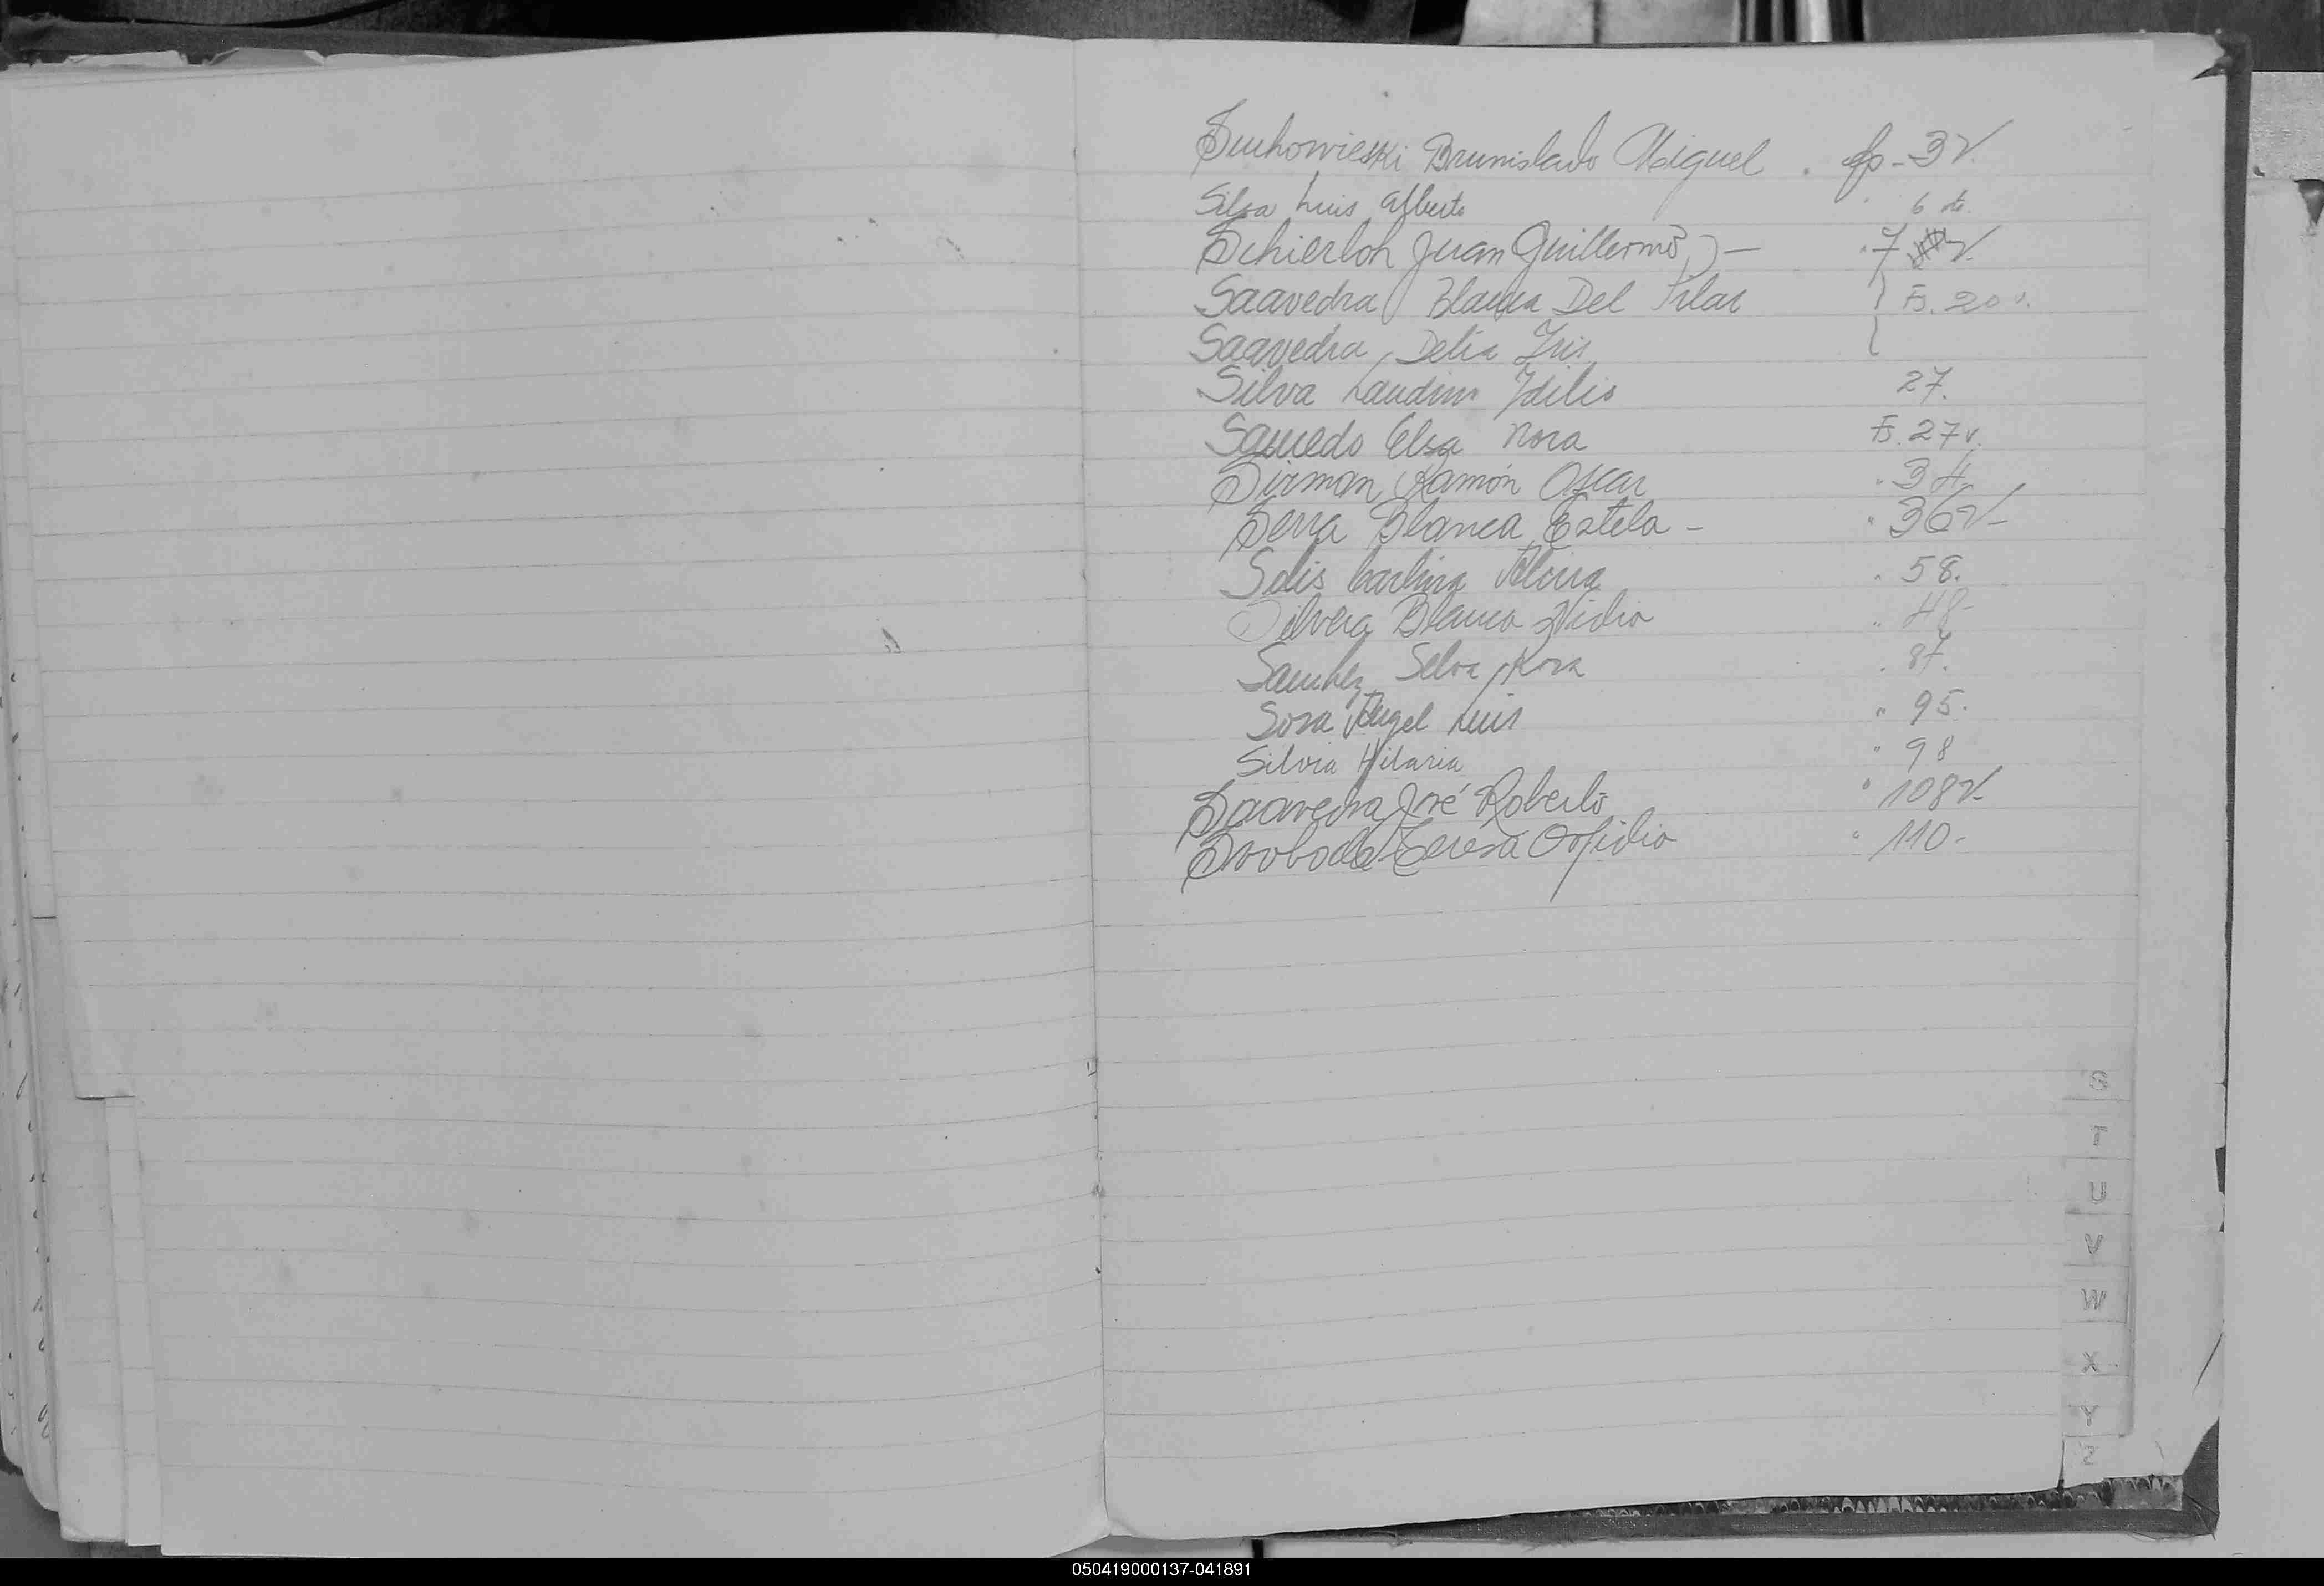 Suchowieski Brunislado Miguel . fo - 3v.
Silva Luis Alberto " 6 vto.
Schierloh Juan Guillermo - " 7 v.
Saavedra Blanca Del Pilar } Fs. 20 v.
Saavedra, Delia Iris
Silva Laudino Idilio 27.
Saucedo Elsa Nora Fs. 27 v.
Sirman Ramón Oscar " 34.
Serra Blanca Estela - " 36v -
Solis Carlina Alcira " 58.
Silvera Blanca Nidia " 48 -
Sanchez Selva Rosa . 87.
Sosa Angel Luis " 95.
Silvia Hilaria " 98
Saavedra José Roberto " 108v -
Svoboda Teresa Orfidia " 110 -
S
T
U
V
W
X
Y
Z
050419000137-041891